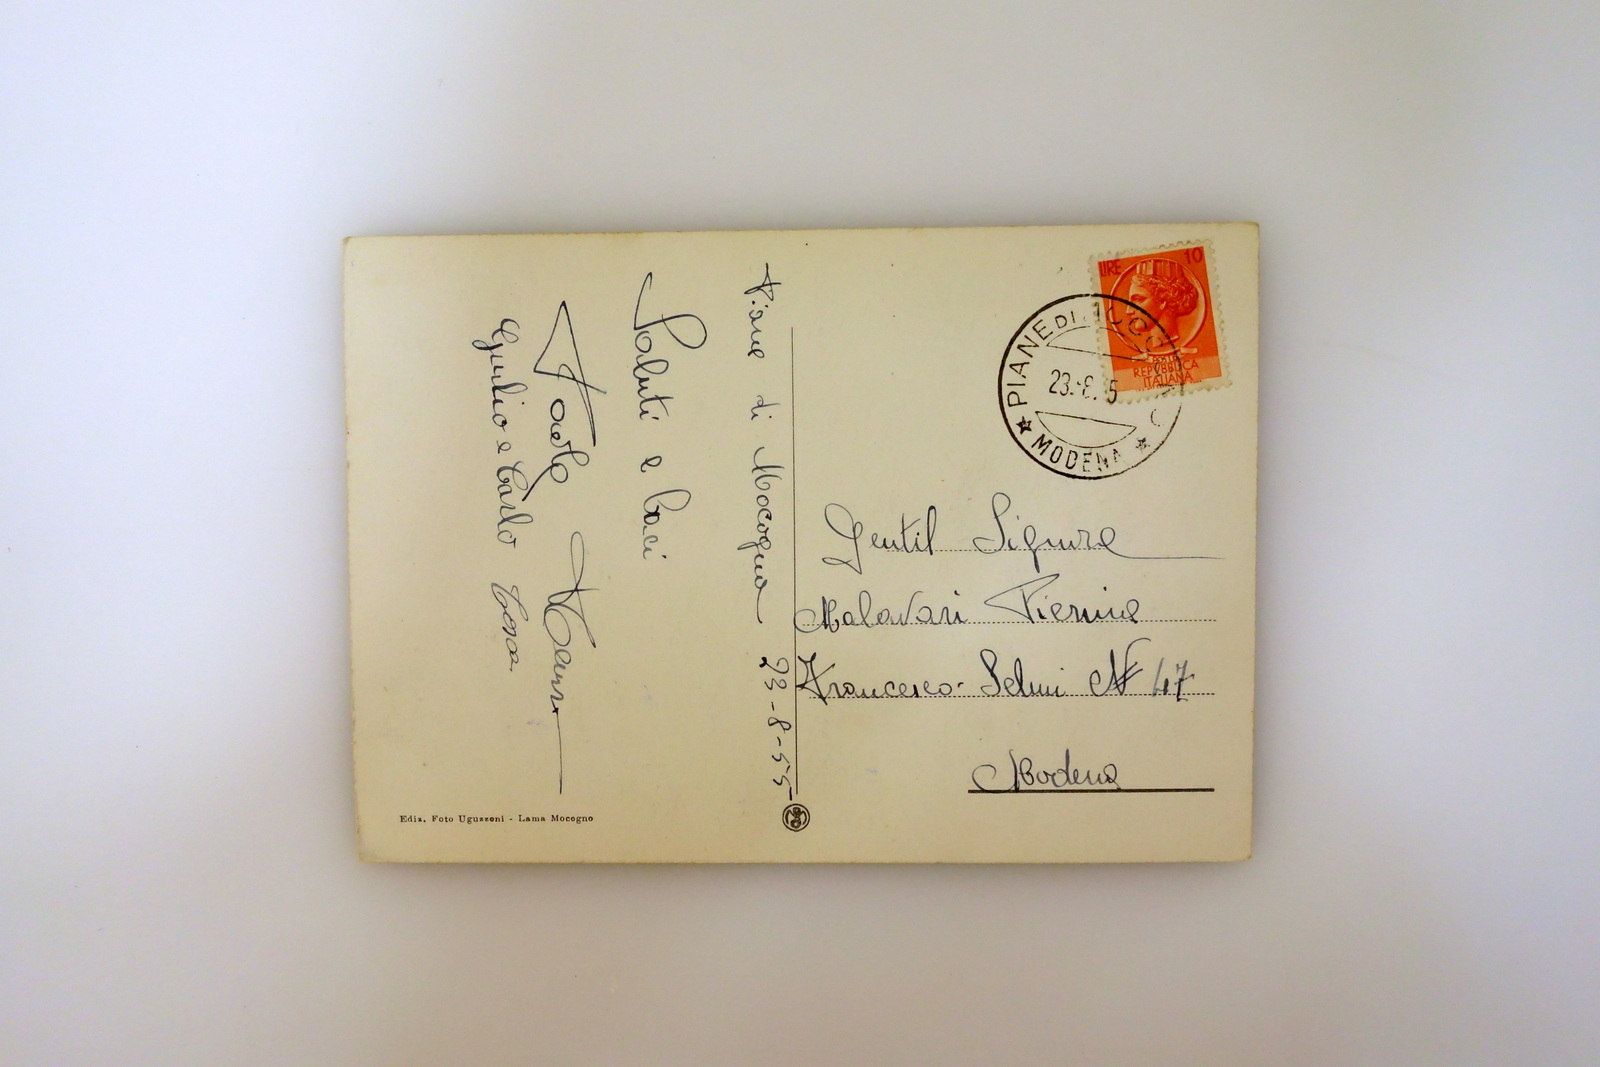 Piane di Mocogno 23-8-55
Saluti e baci
Paolo
Giulio e Carlo
LIRE 10
POSTE
REPVBBLICA
ITALIANA
PIANE DI MOCOGNO
23.-8.55
★ MODENA ★
Gentil Signora
Malavasi Pierina
Francesco-Selmi N 47
Modena
Ediz. Foto Uguzzoni - Lama Mocogno